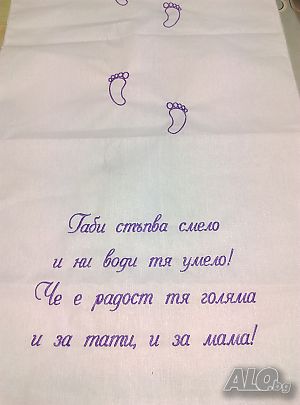 Габи стъпва смело
и ни води тя умело!
Че е радост тя голяма
и за тати, и за мама!
ALO.bg